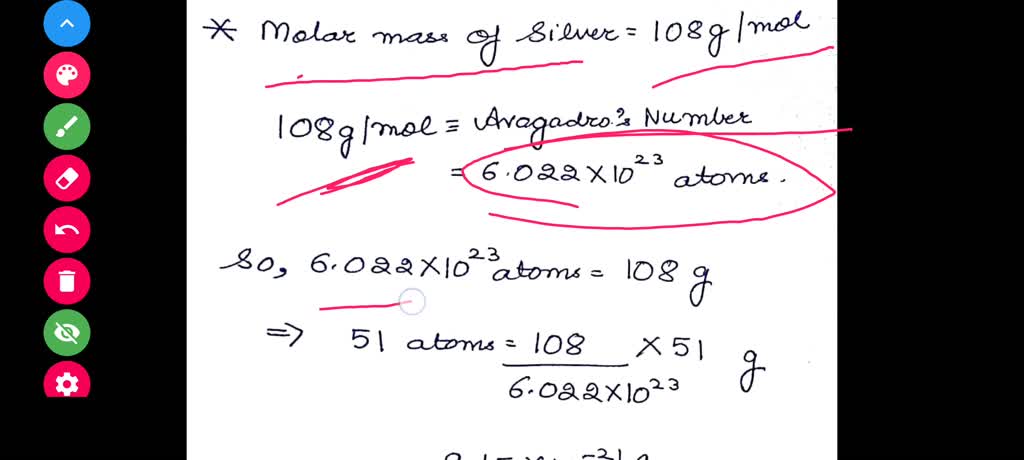 * Molar mass of Silver = 108g/mol
108g/mol ≡ Avagadro's Number
= 6.022 × 10²³ atoms.
So, 6.022 × 10²³ atoms = 108 g
⇒ 51 atoms = 108 × 51 g
6.022 × 10²³